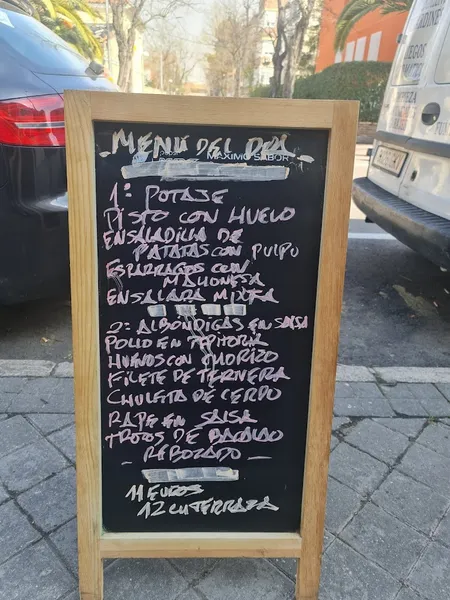 MENÚ DEL DÍA
MAXIMO SABOR
1º: POTAJE
PISTO CON HUEVO
ENSALADILLA DE
PATATAS CON PULPO
ESPARRAGOS CON
MAHONESA
ENSALADA MIXTA
2º: ALBONDIGAS EN SALSA
POLLO EN PEPITORIA
HUEVOS CON CHORIZO
FILETE DE TERNERA
CHULETA DE CERDO
RAPE EN SALSA
TROZOS DE BACALAO
- REBOZADO -
11 EUROS
12 EN TERRAZA